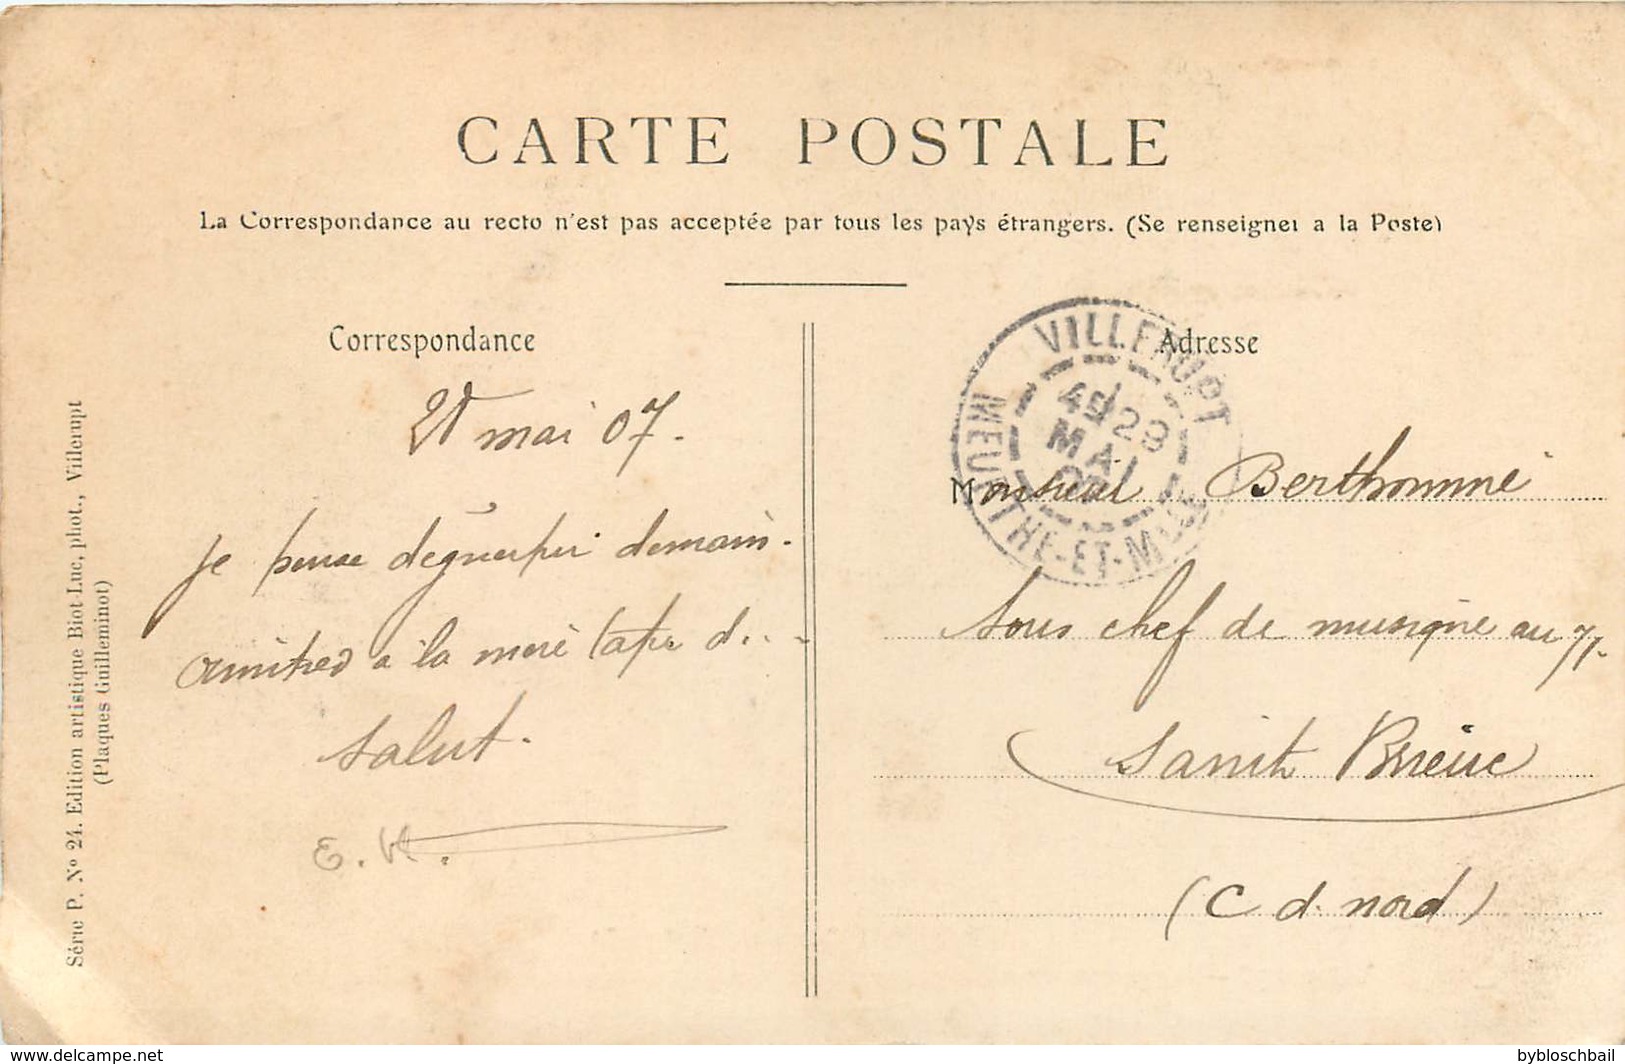 CARTE POSTALE
La Correspondance au recto n'est pas acceptée par tous les pays étrangers. (Se renseigner a la Poste)
Correspondance
mai 07.
je pense déguerpir demain.
amitied a la mere d...
salut.
E. H.
Série P. N° 24. Edition artistique Biot-Luc, phot., Villerupt
(Plaques Guilleminot)
VILLERUPT
29
MAI
07
MEURTHE-ET-MLLE
Adresse
Monsieur Berthommé
Sous chef de musique au 71.
Saint Brieuc
(C d. nord)
www.delcampe.net
bybloschbail